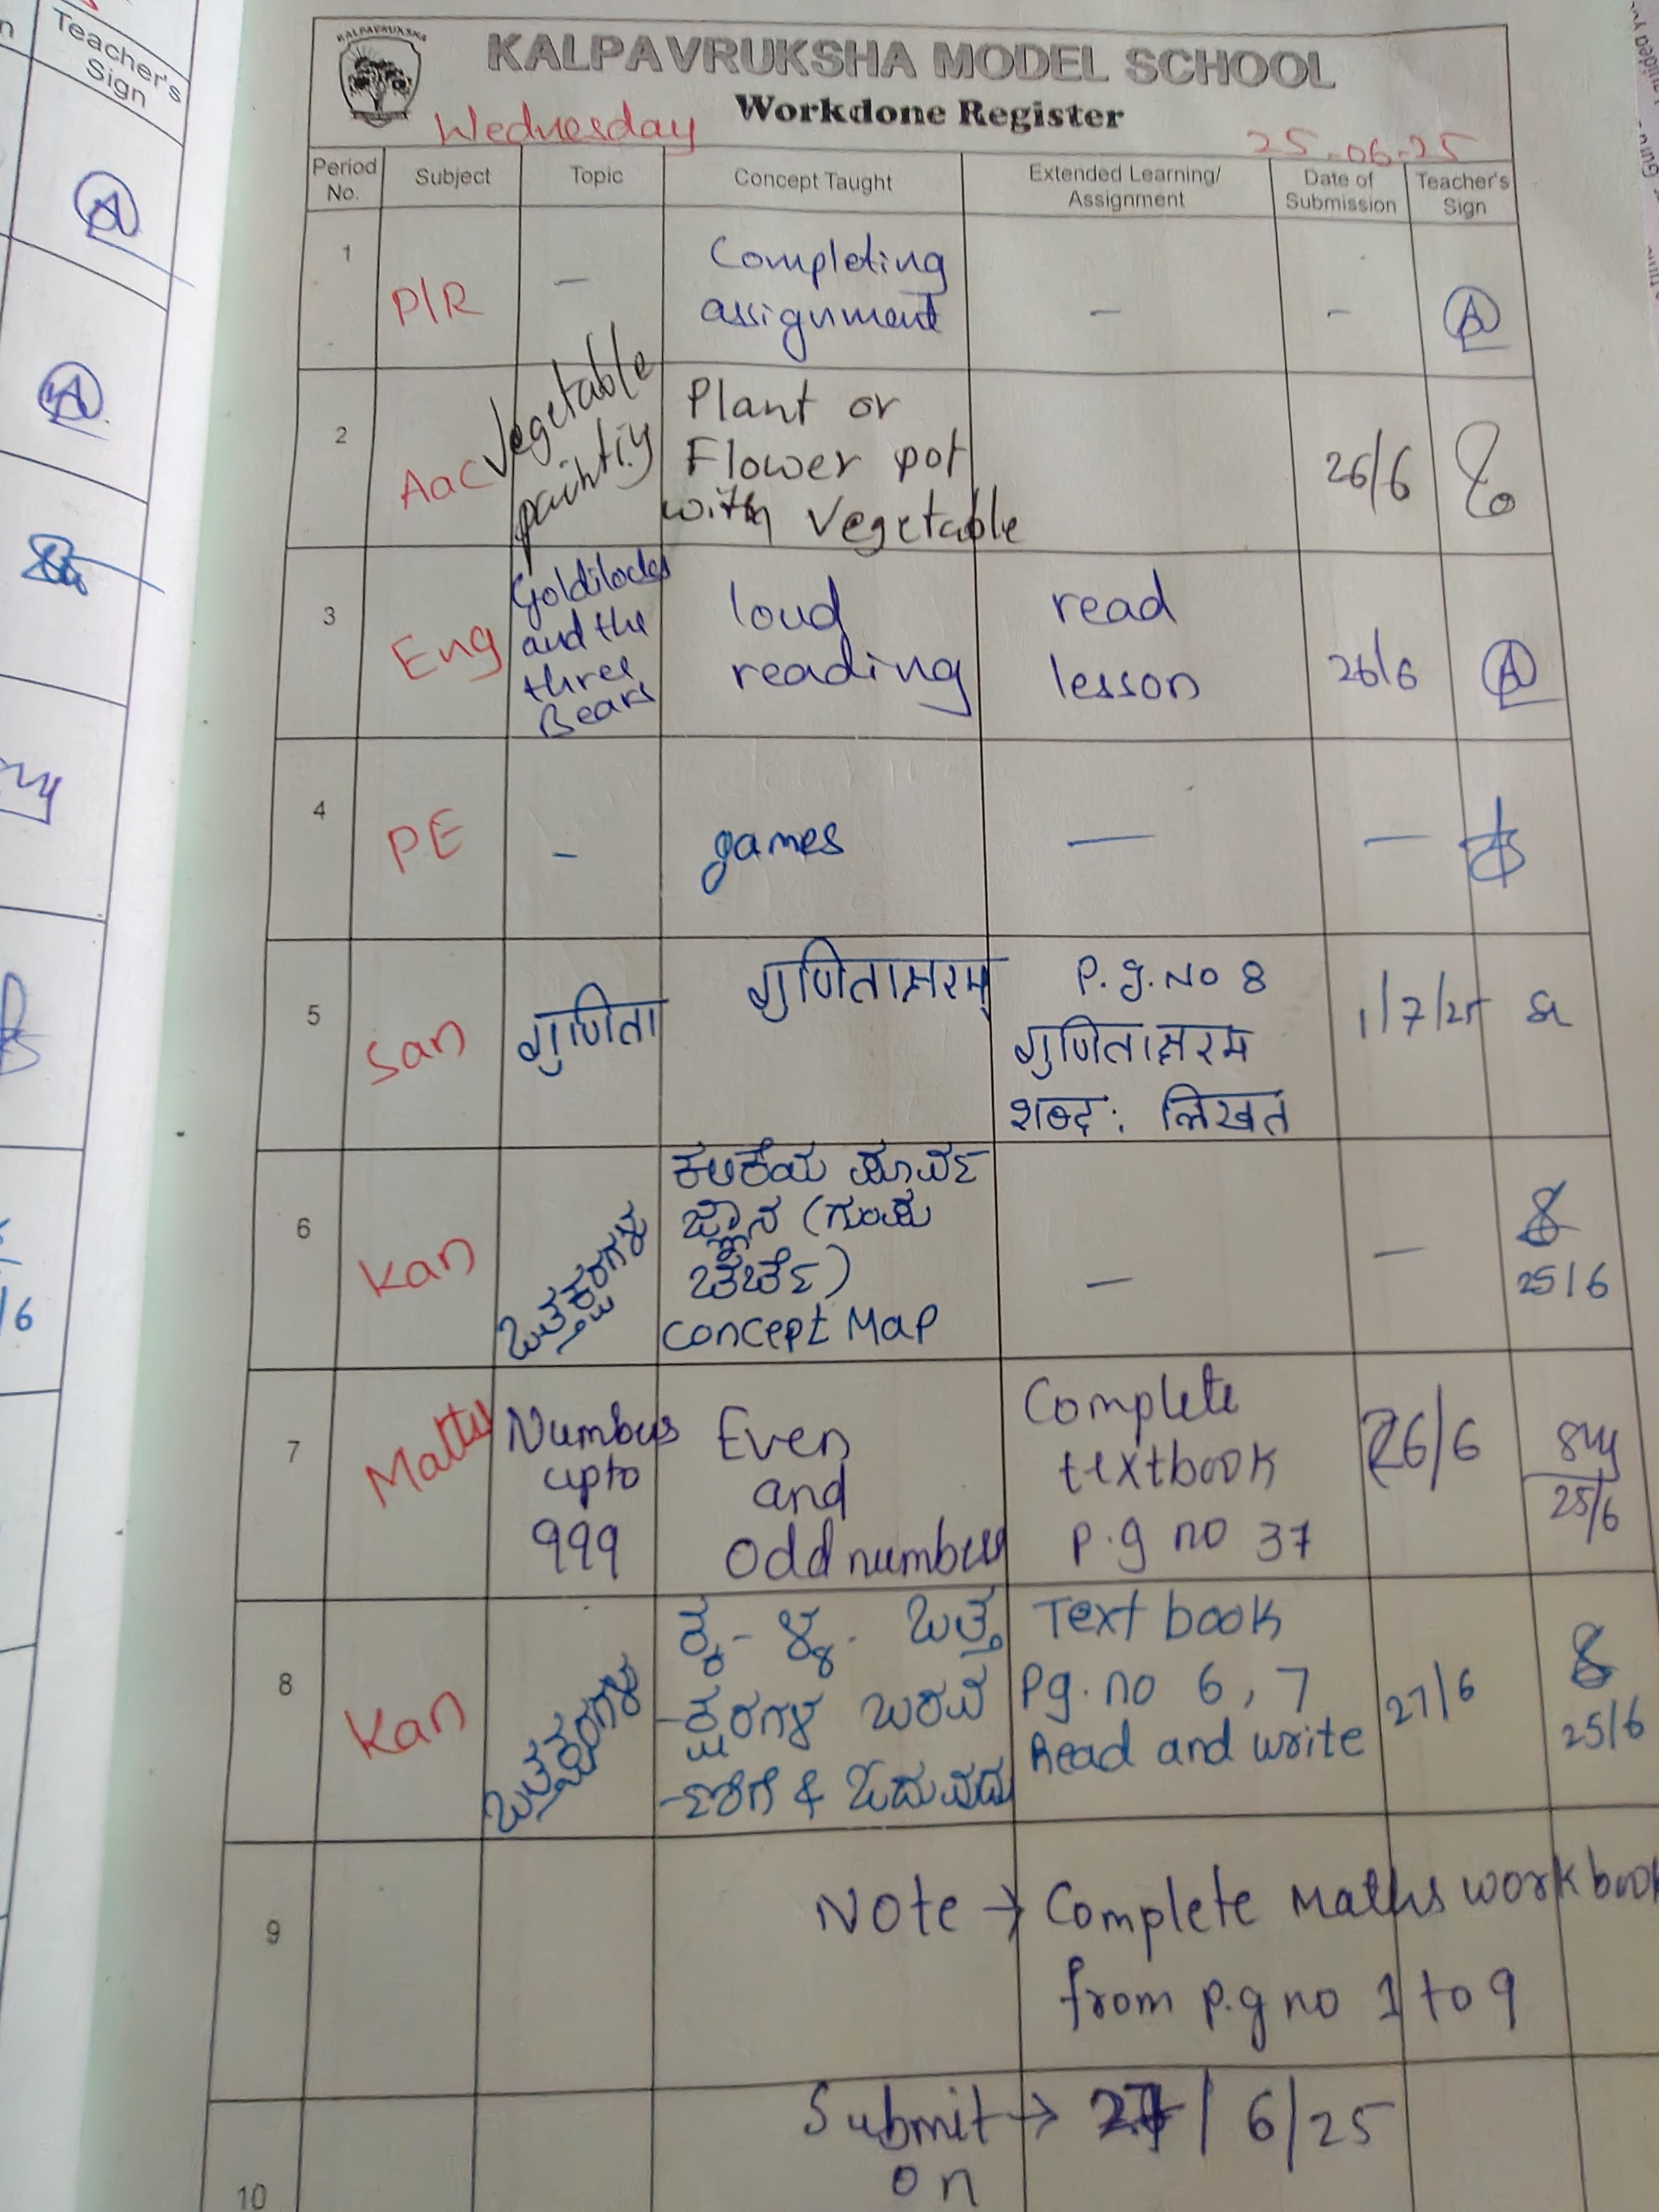 Teacher's
Sign
KALPAVRUKSHA
KALPAVRUKSHA MODEL SCHOOL
Workdone Register
Wednesday
25-06-25
Period No.
Subject
Topic
Concept Taught
Extended Learning/ Assignment
Date of Submission
Teacher's Sign
1
P/R
-
Completing
assignment
-
-
2
AaC
Vegetable
Plant or
Flower pot
with Vegetable
26/6
3
Eng
Goldilocks
and the
three
Bears
loud
reading
read
lesson
26/6
4
PE
-
games
-
-
5
San
गुणिता
गुणिताक्षरम्
P.g.No 8
गुणिताक्षरम
शब्द: लिखत
1/7/25
6
Kan
ಒತ್ತಕ್ಷರಗಳು
ಕಲಿಕೆಯ ಪೂರ್ವ
ಜ್ಞಾನ (ಗುಂಪು
ಚರ್ಚೆ)
Concept Map
-
-
25/6
7
Maths
Numbers
upto
999
Even
and
Odd numbers
Complete
textbook
P.g no 37
26/6
25/6
8
Kan
ಒತ್ತಕ್ಷರಗಳು
ಕ್ಕ - ಳ್ಳ - ಒತ್ತ
-ಕ್ಷರಗಳ ಬರವ
-ಣಿಗೆ & ಓದುವುದು
Text book
Pg. no 6, 7
Read and write
27/6
25/6
9
Note → Complete Maths workbook
from p.g no 1 to 9
10
Submit → 27/6/25
on